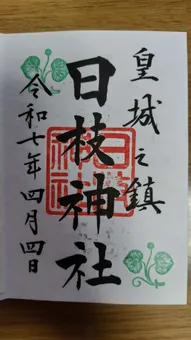 皇城之鎮
日枝神社
令和七年四月四日